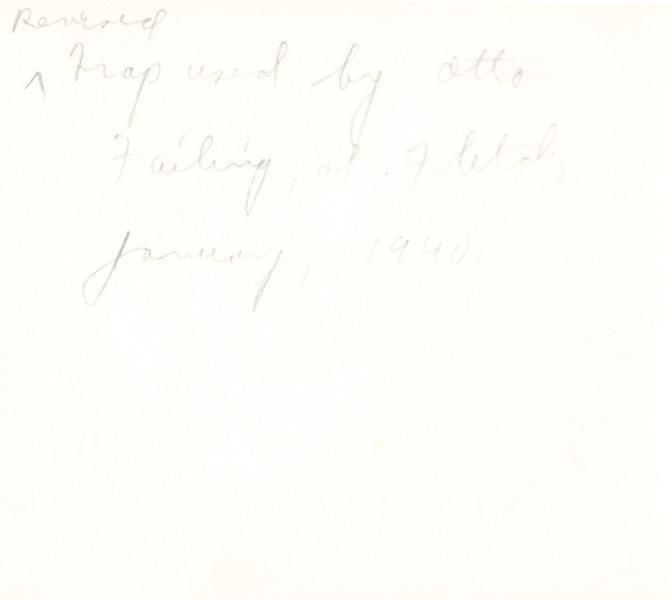 Revised
^ Trap used by Otto
Failing, at Fletch
January, 1940.